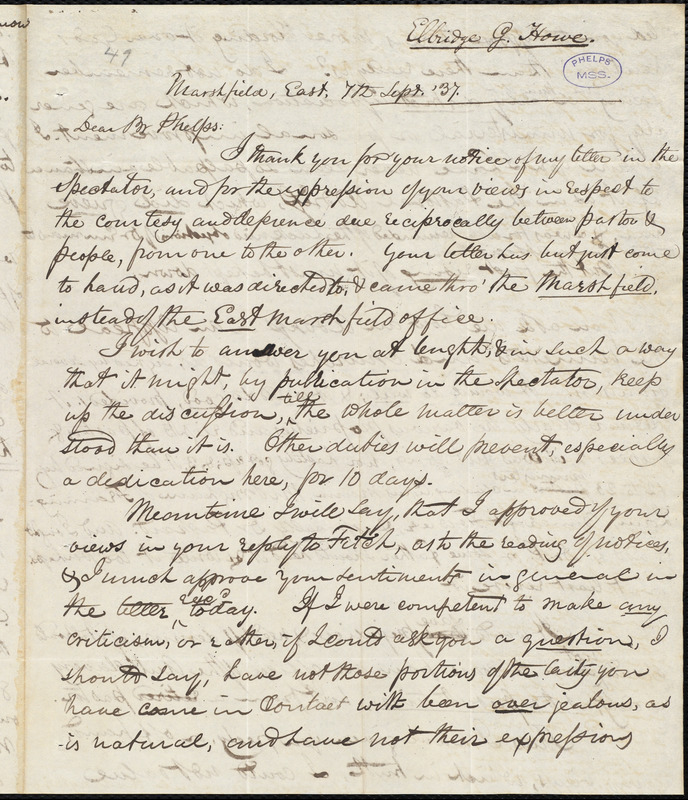 Elbridge G. Howe.
49
PHELPS
MSS.
Marshfield, East, 7th Sept. '37.
Dear Br Phelps:
I thank you for your notice of my letter in the
Spectator, and for the expression of your views in respect to
the courtesy and deference due reciprocally between pastor &
people, from one to the other. Your letter has but just come
to hand, as it was directed to, & came thro' the Marshfield,
instead of the East Marshfield office.
I wish to answer you at lenght, & in such a way
that it might, by publication in the Spectator, keep
up the discussion, till the whole matter is better under
stood than it is. Other duties will prevent, especially
a dedication here, for 10 days.
Meantime I will say, that I approved of your
views in your reply to Fitch, as to the reading of notices,
& I much approve your sentiments in general in
the letter recd today. If I were competent to make any
criticism, or rather, if I could ask you a question, I
should say, have not those portions of the laity you
have come in Contact with been over jealous, as
is natural, and have not their expressions